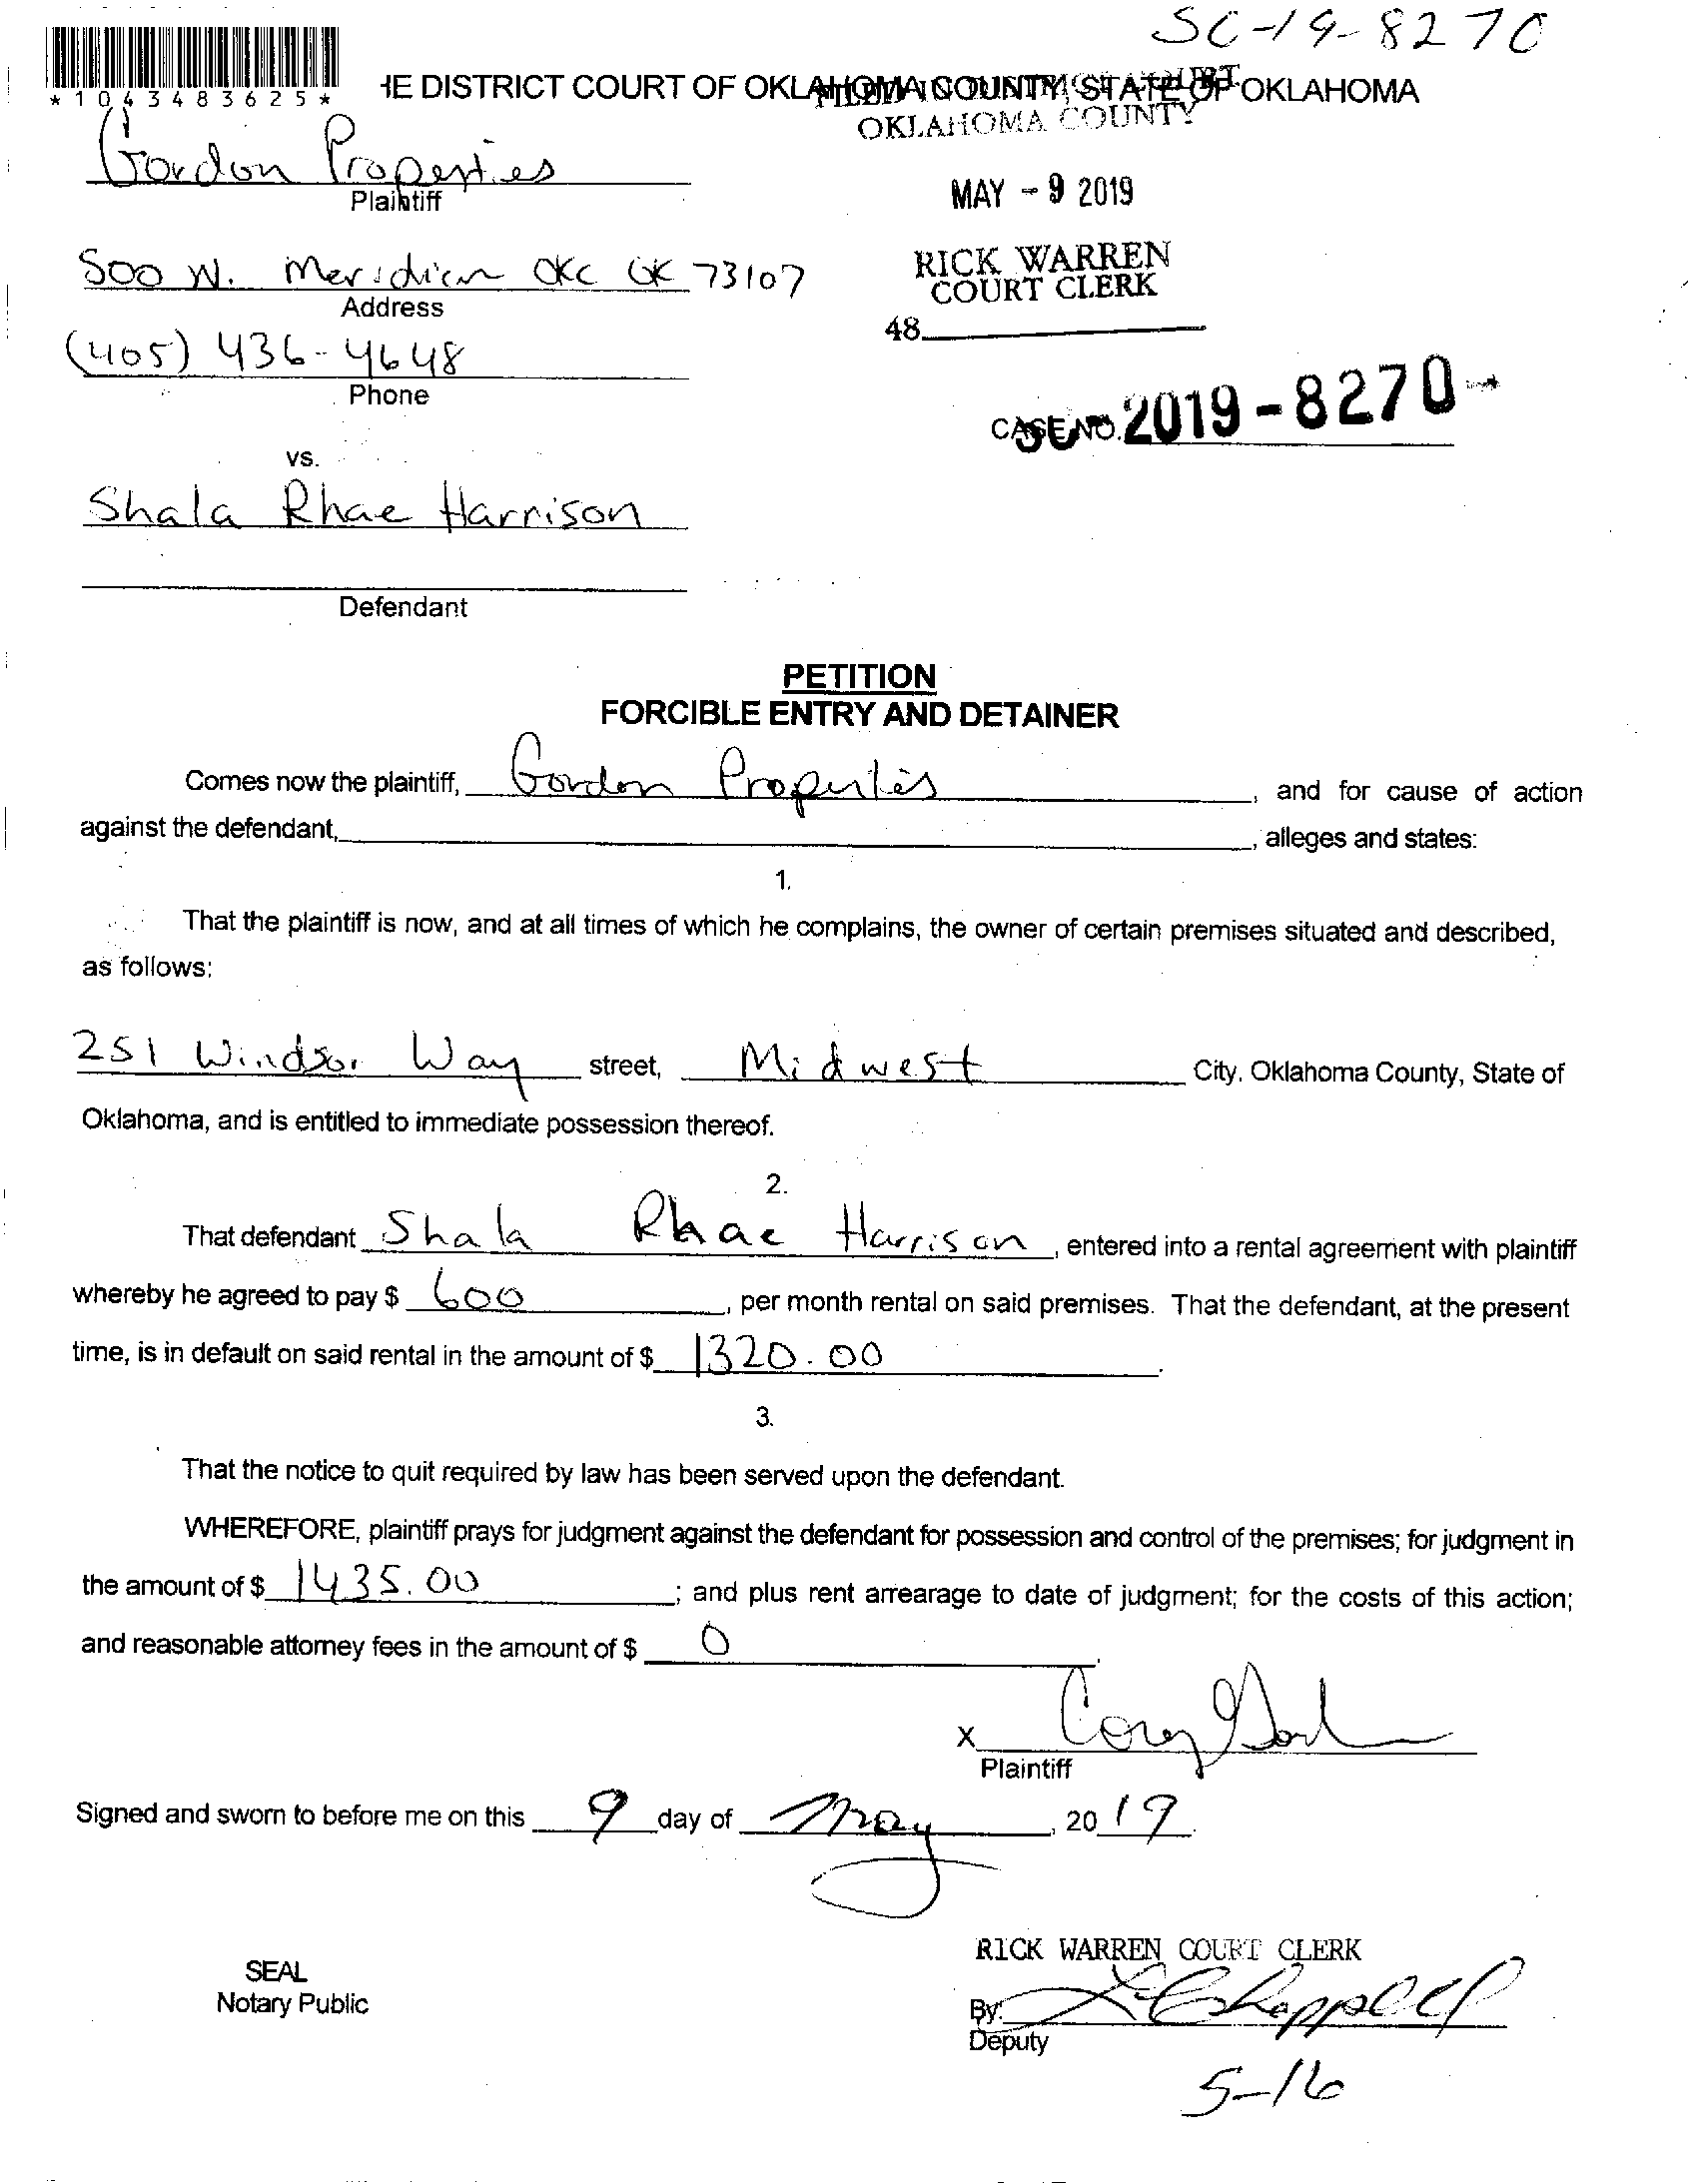 SC-19-8270
*1043483625*
HE DISTRICT COURT OF OKLAHOMA COUNTY, STATE OF OKLAHOMA
FILED IN DISTRICT COURT
OKLAHOMA COUNTY
Gordon Properties
Plaintiff
MAY - 9 2019
500 N. Meridian OKC OK 73107
Address
RICK WARREN
COURT CLERK
48
(405) 436-4648
Phone
CASE NO. 2019-8270
vs.
Shala Rhae Harrison
Defendant
PETITION
FORCIBLE ENTRY AND DETAINER
Comes now the plaintiff, Gordon Properties, and for cause of action
against the defendant, , alleges and states:
1.
That the plaintiff is now, and at all times of which he complains, the owner of certain premises situated and described,
as follows:
251 Windsor Way street, Midwest City, Oklahoma County, State of
Oklahoma, and is entitled to immediate possession thereof.
2.
That defendant Shala Rhae Harrison, entered into a rental agreement with plaintiff
whereby he agreed to pay $ 600, per month rental on said premises. That the defendant, at the present
time, is in default on said rental in the amount of $ 1320.00.
3.
That the notice to quit required by law has been served upon the defendant.
WHEREFORE, plaintiff prays for judgment against the defendant for possession and control of the premises; for judgment in
the amount of $ 1435.00; and plus rent arrearage to date of judgment; for the costs of this action;
and reasonable attorney fees in the amount of $ 0.
X
Plaintiff
Signed and sworn to before me on this 9 day of May, 2019.
RICK WARREN COURT CLERK
SEAL
Notary Public
By:
Deputy
5-16